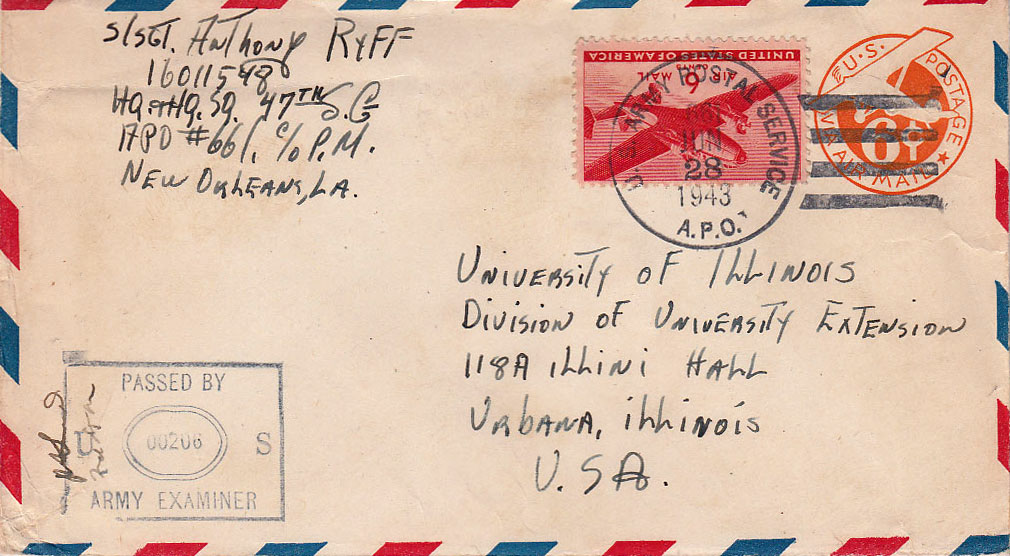 S/SGT. ANTHONY RYFF
16011548
HQ. & HQ. SQ. 47TH S.G
APO #661. C/O P.M.
NEW ORLEANS, LA.
UNITED STATES OF AMERICA
AIR MAIL
6 CENTS
U.S. ARMY POSTAL SERVICE
JUN
28
1943
A.P.O.
U.S. POSTAGE
6¢
VIA AIR MAIL
UNIVERSITY OF ILLINOIS
DIVISION OF UNIVERSITY EXTENSION
118A ILLINI HALL
URBANA, ILLINOIS
U.SA.
PASSED BY
U 00206 S
ARMY EXAMINER